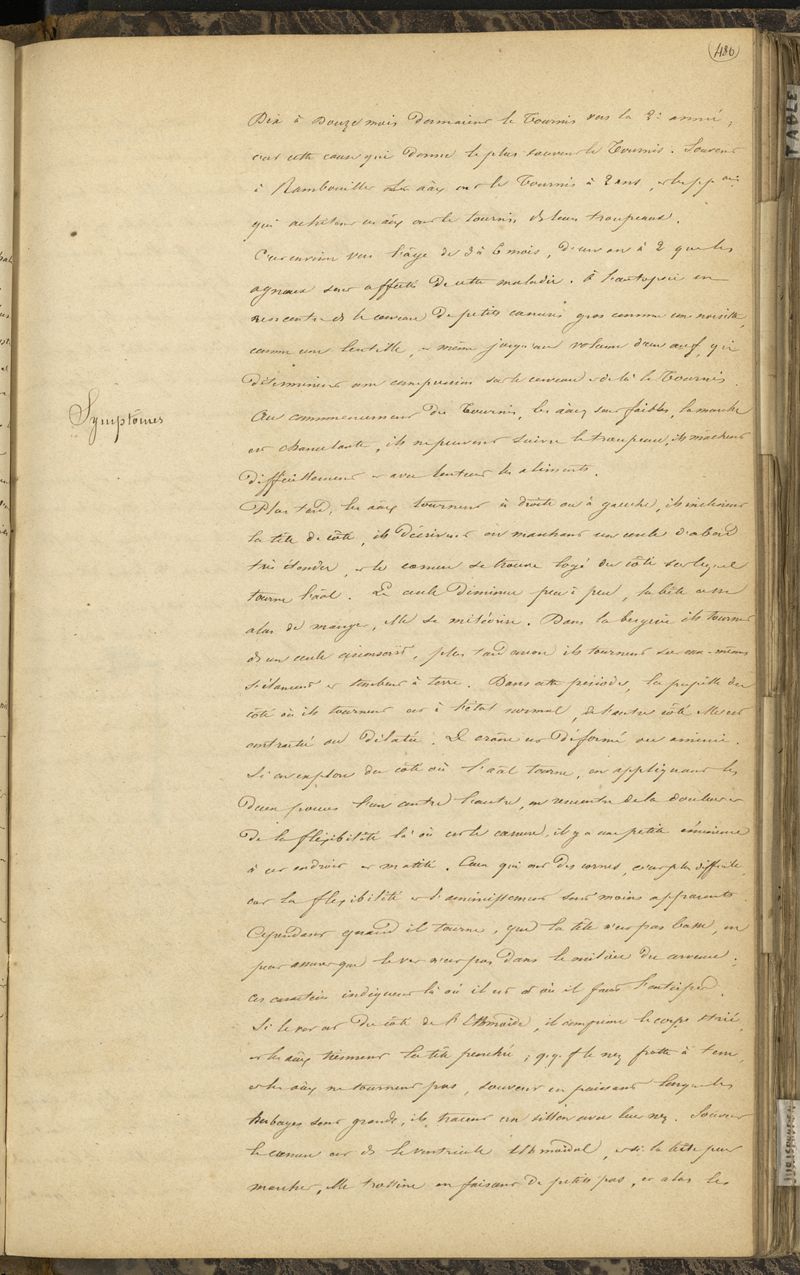 486
Dix à Douze mois donnaient le Tournis vers la 2e année,
c'est cette cause qui donne le plus souvent le Tournis. Souvent
à Rambouillet les aâx ont le Tournis à 2 ans, et les pp
qui achètent ces aâx ont le tournis ds leurs troupeaux.
C'est environ vers l'âge de 3 à 6 mois, d'un an à 2 que les
agneaux sont affectés de cette maladie. à l'autopsie on
rencontre ds le cerveau de petits cœnures gros comme une noisette,
comme une lentille, et même jusqu'au volume d'un œuf, qui
déterminent une compression sur le cerveau et de là le Tournis.
Symptômes
Au commencement du Tournis, les aâx sont faibles, la marche
est chancelante, ils ne peuvent suivre le troupeau, ils mâchent
difficilement et avec lenteur les aliments.
Plus tard, les aâx tournent à droite ou à gauche, ils inclinent
la tête de côté, ils décrivent en marchant un cercle d'abord
très étendu, et le cœnure se trouve logé du côté sur lequel
tourne l'aâl. Le cercle diminue peu à peu, la bête cesse
alors de manger, elle se météorise. Dans la bergerie ils tournent
ds un cercle circonscrit, plus tard encore ils tournent sur eux-mêmes
s'élancent et tombent à terre. Dans cette période, la pupille du
côté où ils tournent est à l'état normal, de l'autre côté elle est
contractée ou dilatée. Le crâne est déformé ou aminci.
Si on explore du côté où l'aâl tourne, en appliquant les
deux pouces l'un contre l'autre, on rencontre de la douleur et
de la flexibilité là où est le cœnure, il y a une petite éminence
à cet endroit et matité. Ceux qui ont des cornes, c'est plus difficile,
car la flexibilité et l'amincissement sont moins apparents.
Cependant quand il tourne, que la tête n'est pas basse, on
peut assurer que le ver n'est pas dans le milieu du cerveau,
ces caractères indiquent là où il est et où il faut l'extirper.
Si le ver est du côté de l'Ethmoïde, il comprime le corps strié,
et les aâx tiennent la tête penchée, qqf le nez frotte à terre,
et les aâx ne tournent pas, souvent en paissant lorsque les
herbages sont grands, ils tracent un sillon avec leur nez. Souvent
le cœnure est ds le ventricule ethmoïdal, et si la bête peut
marcher, elle trottine en faisant de petits pas, et alors les
TABLE
JURISPRUDEN